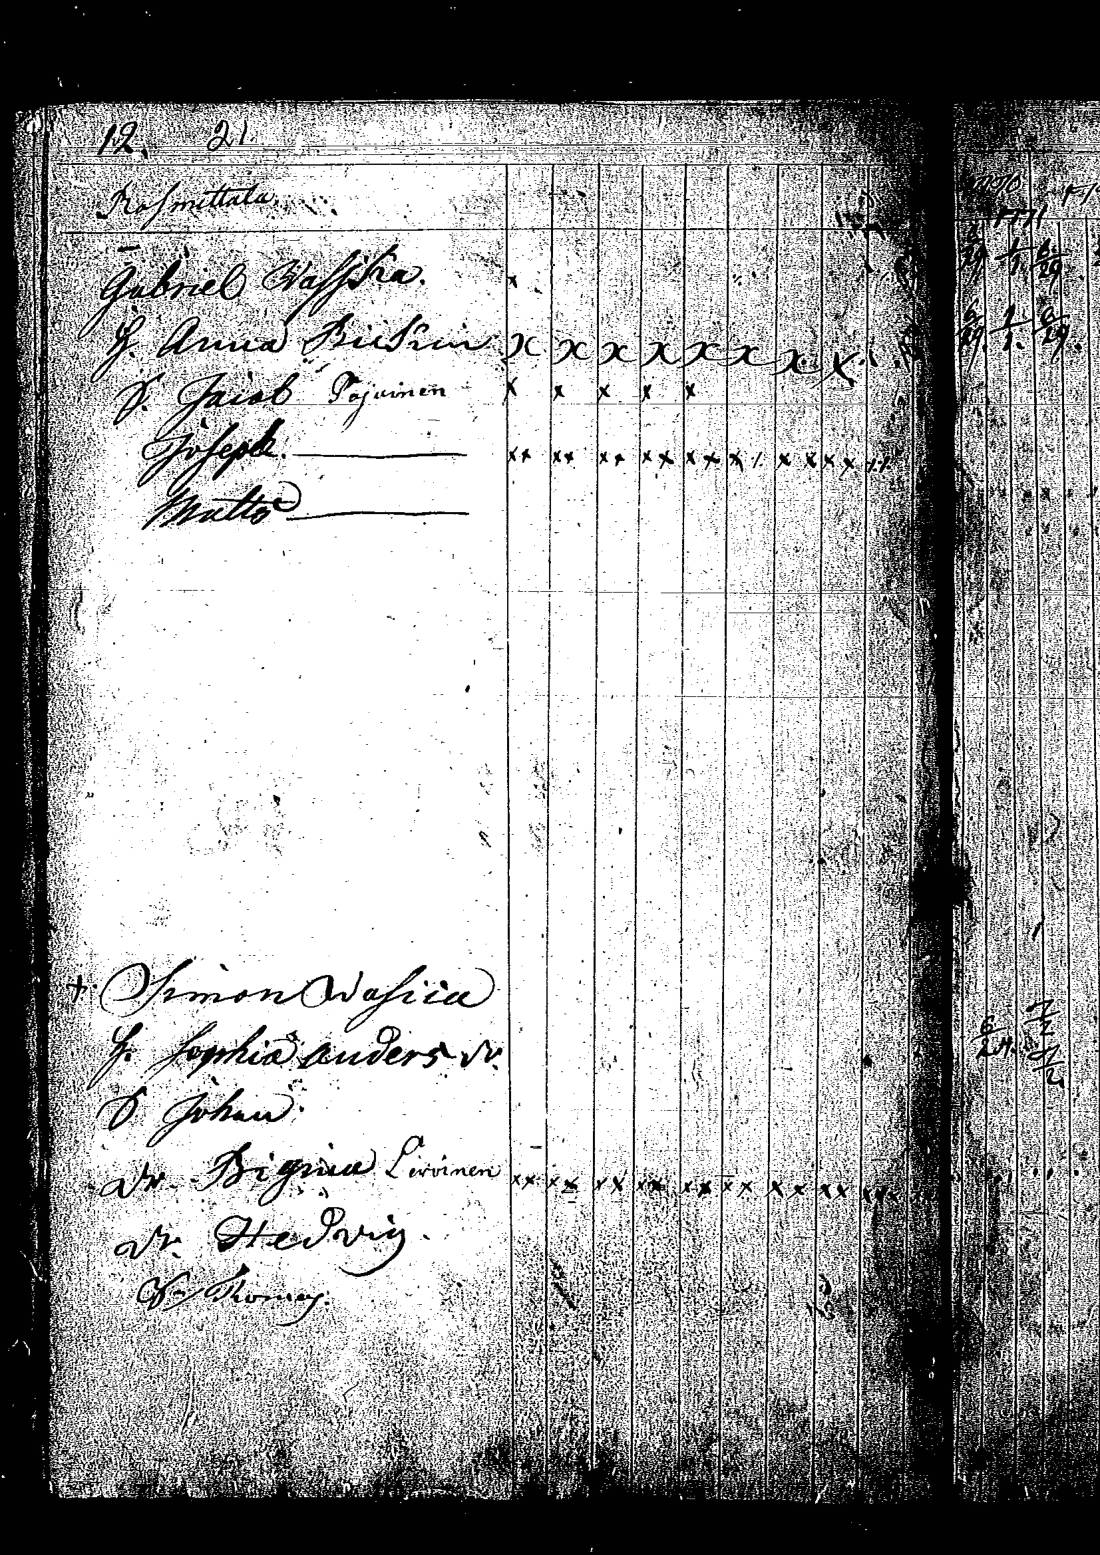 12. 21
Rasmittala
Gabriel Wassika. x
H. Anna x x x x x x x x
S. Jacob Tojainen x x x x x
Joseph. ——— xx xx xx xx xx x x xx xx
Matts ———
+ Simon Wasiia
H. Sophia anders dr.
S Johan
dr. Brigitta xx xx xx xx xx xx xx xx xx xx
dr. Hedvig.
Thomas.
1770
1771
6/29 1/1 6/29
6/29. 1/1. 6/29.
6/24. 7/2
7/2